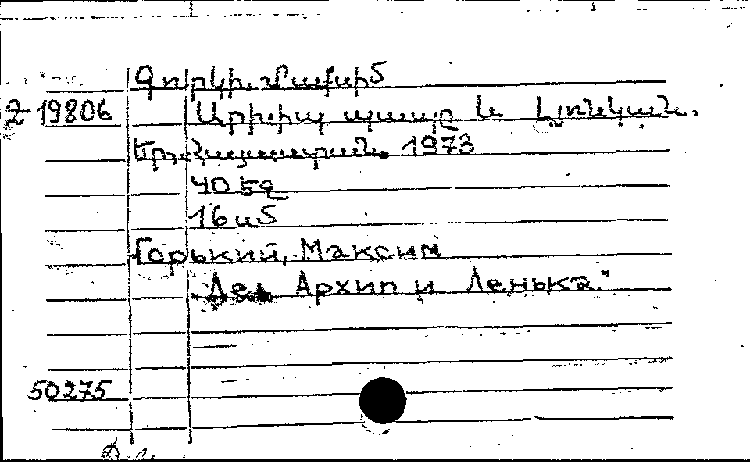 Գորկի, Մաքսիմ
Զ 19806 Արխիպ պապը և Լյոնկան.
Եր., Հայաստան, 1973
40 էջ
16 սմ
Горький, Максим
„Дед Архип и Ленька."
50275